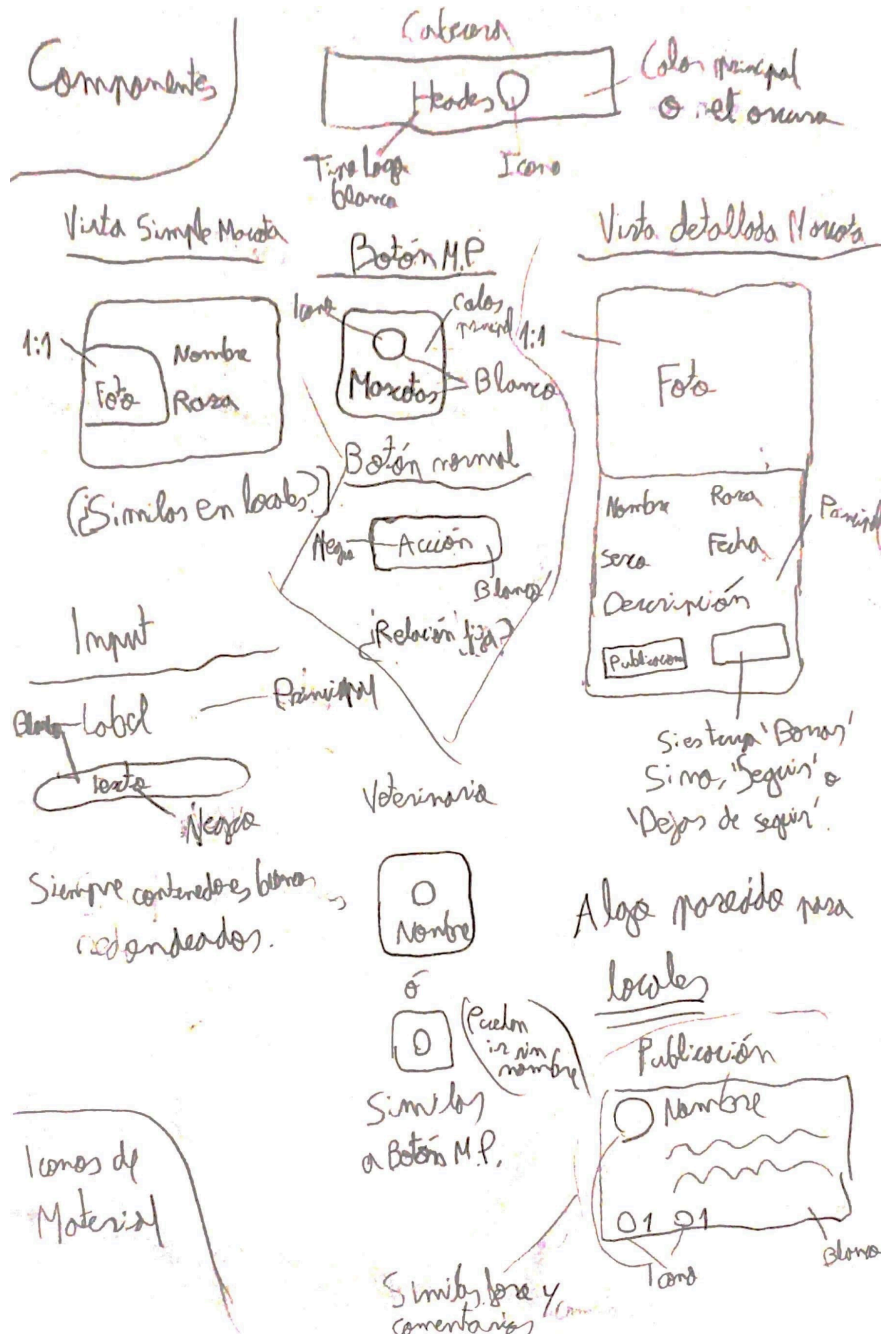 Componentes
Cabecera
Header
Color principal
o set oscura
Tipo Logo
blanco
Icono
Vista Simple Mascota
1:1
Foto
Nombre
Raza
(¿Similar en locales?)
Botón M.P
Icono
Color
principal
Mascotas
Blanco
Botón normal
Negro
Acción
Blanco
¿Relación fija?
Vista detallada Mascota
1:1
Foto
Nombre
Raza
Sexo
Fecha
Principal
Descripción
Publicacion
Si es tuya 'Borrar'
Si no, 'Seguir' o
'Dejar de seguir'.
Input
Label
Principal
Blanco
texto
Negro
Siempre contenedores
redondeados.
Veterinaria
Nombre
ó
Pueden
ir sin
nombre
Similar
a Botón M.P.
Algo parecido para
locales
Publicación
Nombre
1
1
Icono
Blanco
Similar foro y
comentarios
Iconos de
Material